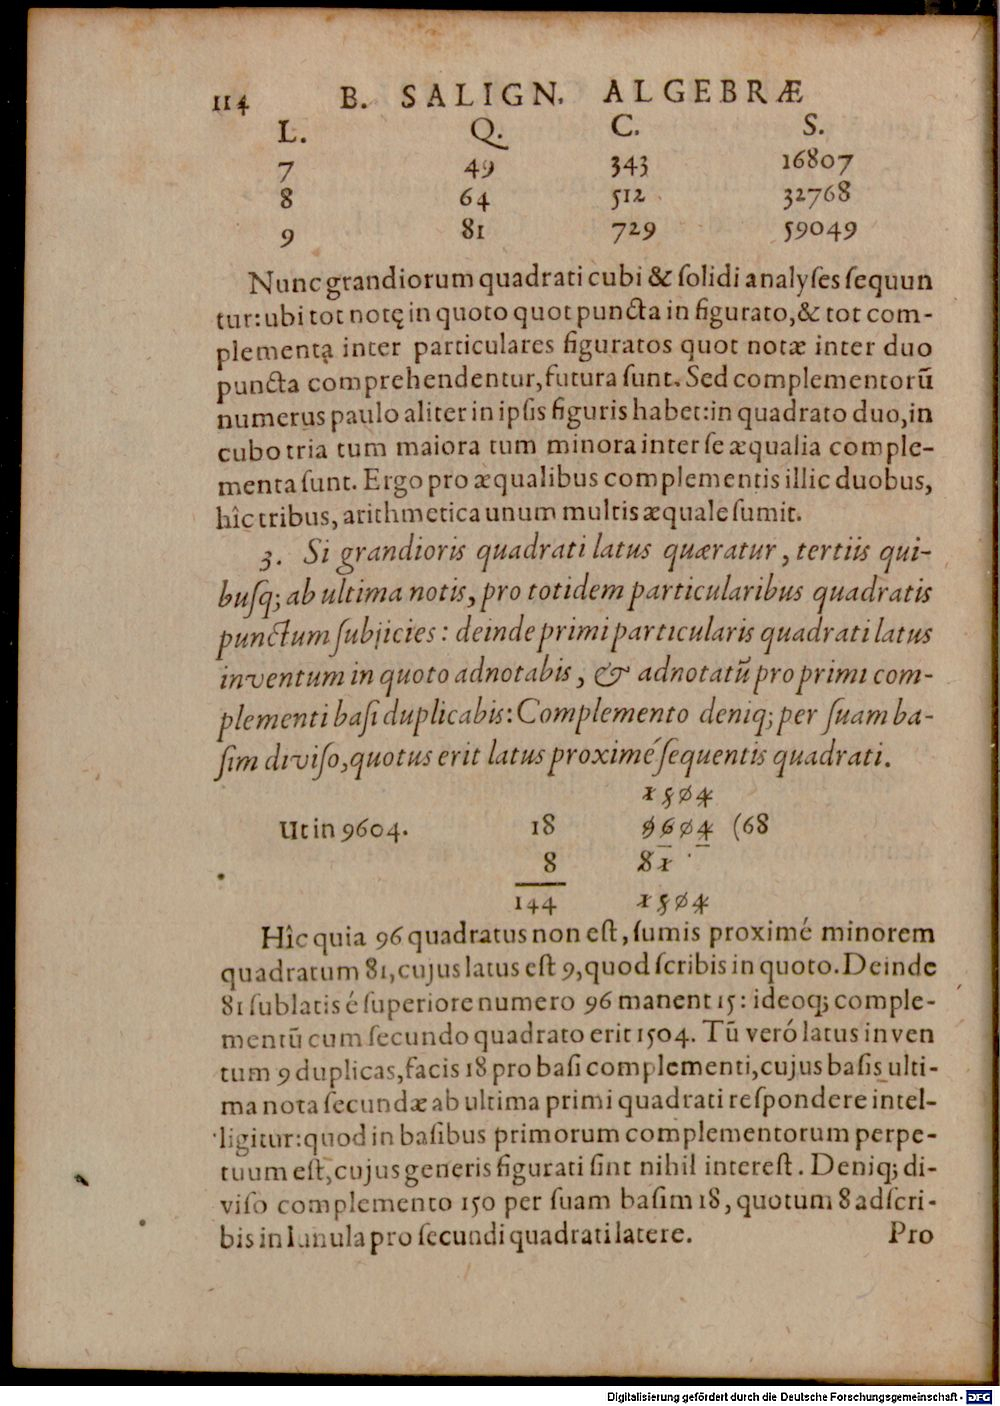 114 B. SALIGN. ALGEBRÆ
L. Q. C. S.
7 49 343 16807
8 64 512 32768
9 81 729 59049
Nunc grandiorum quadrati cubi & ſolidi analyſes ſequun
tur: ubi tot notę in quoto quot puncta in figurato, & tot com-
plementą inter particulares figuratos quot notæ inter duo
puncta comprehendentur, futura ſunt. Sed complementorũ
numerus paulo aliter in ipſis figuris habet: in quadrato duo, in
cubo tria tum maiora tum minora inter ſe æqualia comple-
menta ſunt. Ergo pro æqualibus complementis illic duobus,
hîc tribus, arithmetica unum multis æquale ſumit.
3. Si grandioris quadrati latus quæratur, tertiis qui-
buſq; ab ultima notis, pro totidem particularibus quadratis
punctum ſubjicies: deinde primi particularis quadrati latus
inventum in quoto adnotabis, & adnotatũ pro primi com-
plementi baſi duplicabis: Complemento deniq; per ſuam ba-
ſim diviſo, quotus erit latus proximé ſequentis quadrati.
1504
Ut in 9604. 18 9604 (68
8 81
144 1504
Hîc quia 96 quadratus non eſt, ſumis proximé minorem
quadratum 81, cujus latus eſt 9, quod ſcribis in quoto. Deinde
81 ſublatis é ſuperiore numero 96 manent 15: ideoq; comple-
mentũ cum ſecundo quadrato erit 1504. Tũ veró latus inven
tum 9 duplicas, facis 18 pro baſi complementi, cujus baſis ulti-
ma nota ſecundæ ab ultima primi quadrati reſpondere intel-
ligitur: quod in baſibus primorum complementorum perpe-
tuum eſt, cujus generis figurati ſint nihil intereſt. Deniq; di-
viſo complemento 150 per ſuam baſim 18, quotum 8 adſcri-
bis in lunula pro ſecundi quadrati latere. Pro
Digitalisierung gefördert durch die Deutsche Forschungsgemeinschaft - DFG